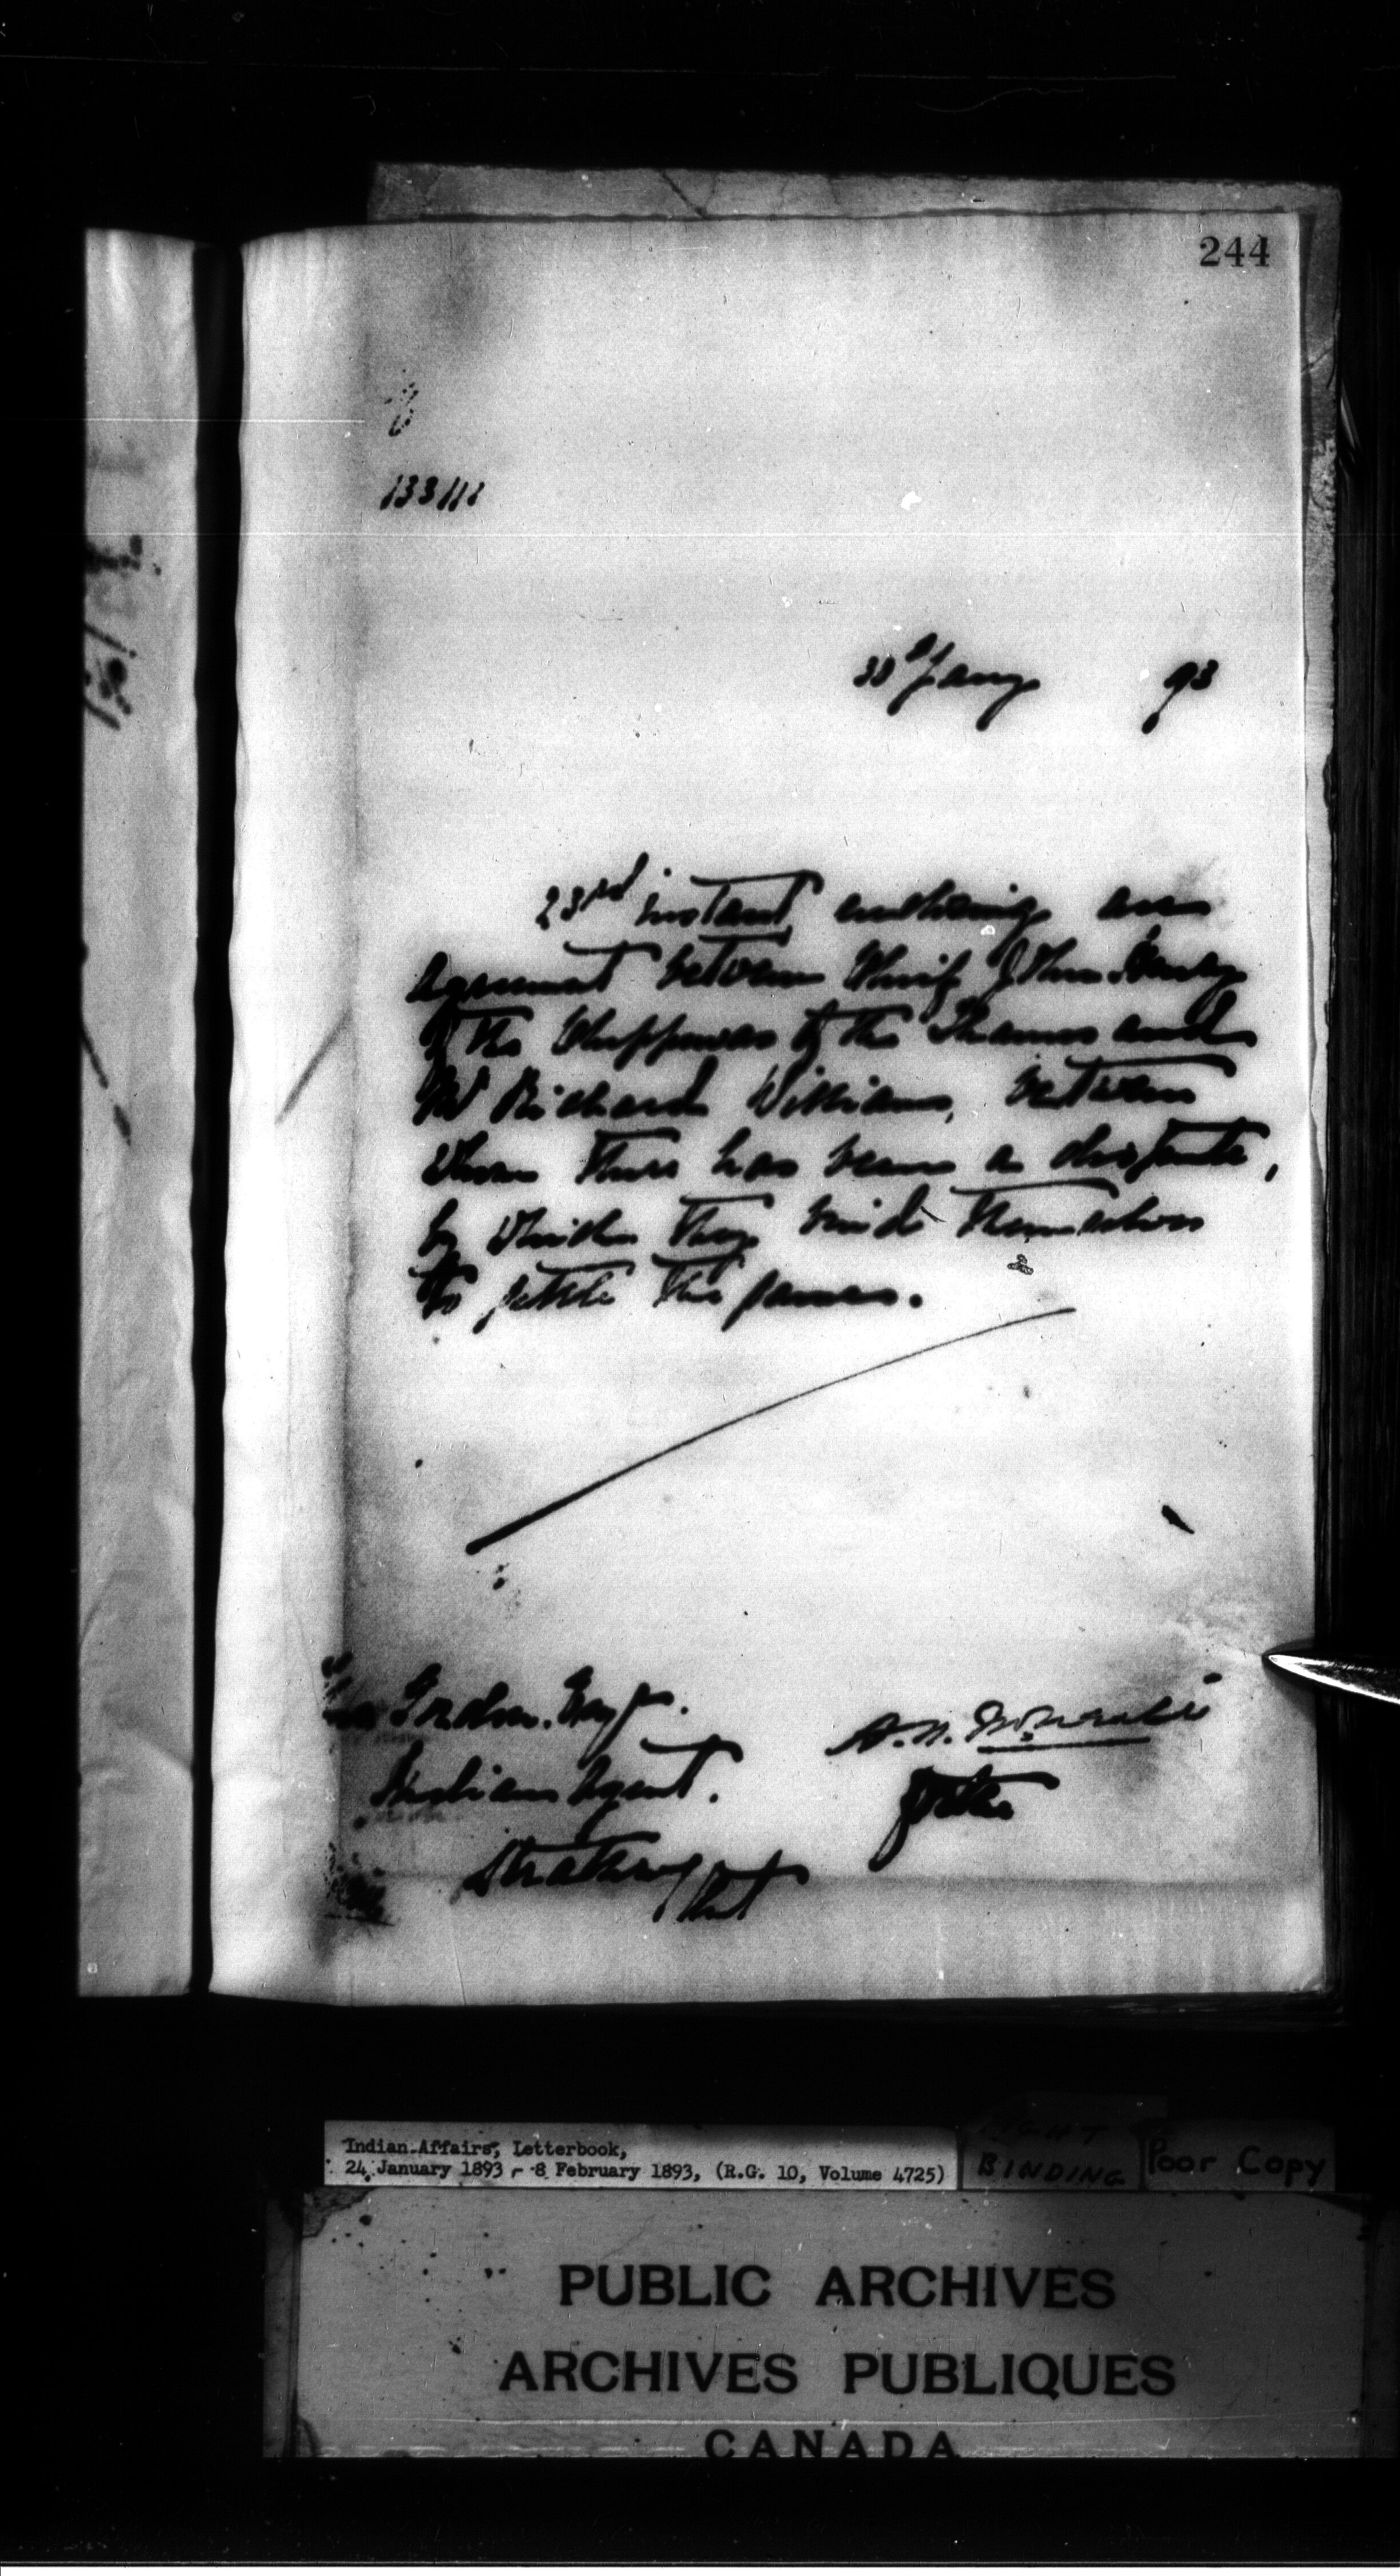 244
133111
30th Jany 93
23rd instant enclosing an
Agreement between Chief John Henry
of the Chippewas of the Thames and
Mr Richard Williams, between
whom there has been a dispute,
by which they bind themselves
to settle the same.
Gordon. Esq.
Indian Agent.
Strathroy
Ont
A. N. McNeill
Indian Affairs, Letterbook,
24 January 1893 - 8 February 1893, (R.G. 10, Volume 4725)
BINDING
Poor Copy
PUBLIC ARCHIVES
ARCHIVES PUBLIQUES
CANADA